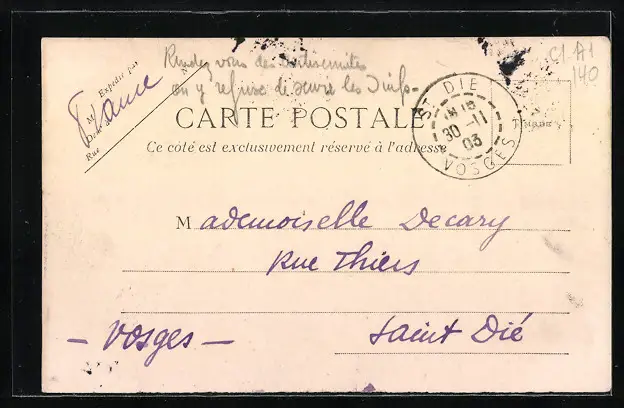 Rendez vous des antisemites
on y refuse de servir les Juifs-
C1 A1
140
Expédié par
M
Rue
France
CARTE POSTALE
Ce côté est exclusivement réservé à l'adresse
ST DIÉ
30 -11
03
VOSGES
Mademoiselle Decary
Rue Thiers
- Vosges -
Saint Dié